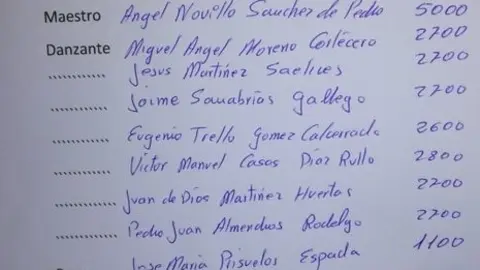 Maestro Angel Novillo Sanchez de Pedro 5000
Danzante Miguel Angel Moreno Cortecero 2700
............ Jesus Martinez Saelices 2700
............ Jaime Sanabrias Gallego 2700
............ Eugenio Trello Gomez Calcerrada 2600
............ Victor Manuel Casas Diaz Rullo 2800
............ Juan de Dios Martinez Huertas 2200
............ Pedro Juan Almendros Rodelgo 2700
Jose Maria Espada 1100